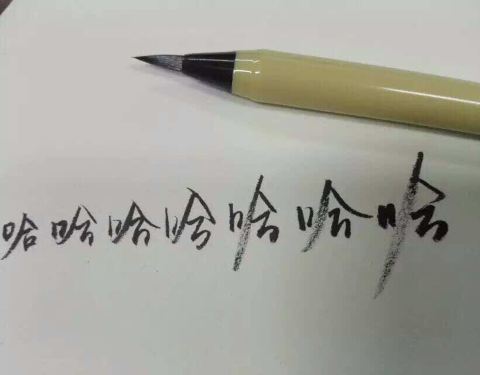 哈哈哈哈哈哈哈